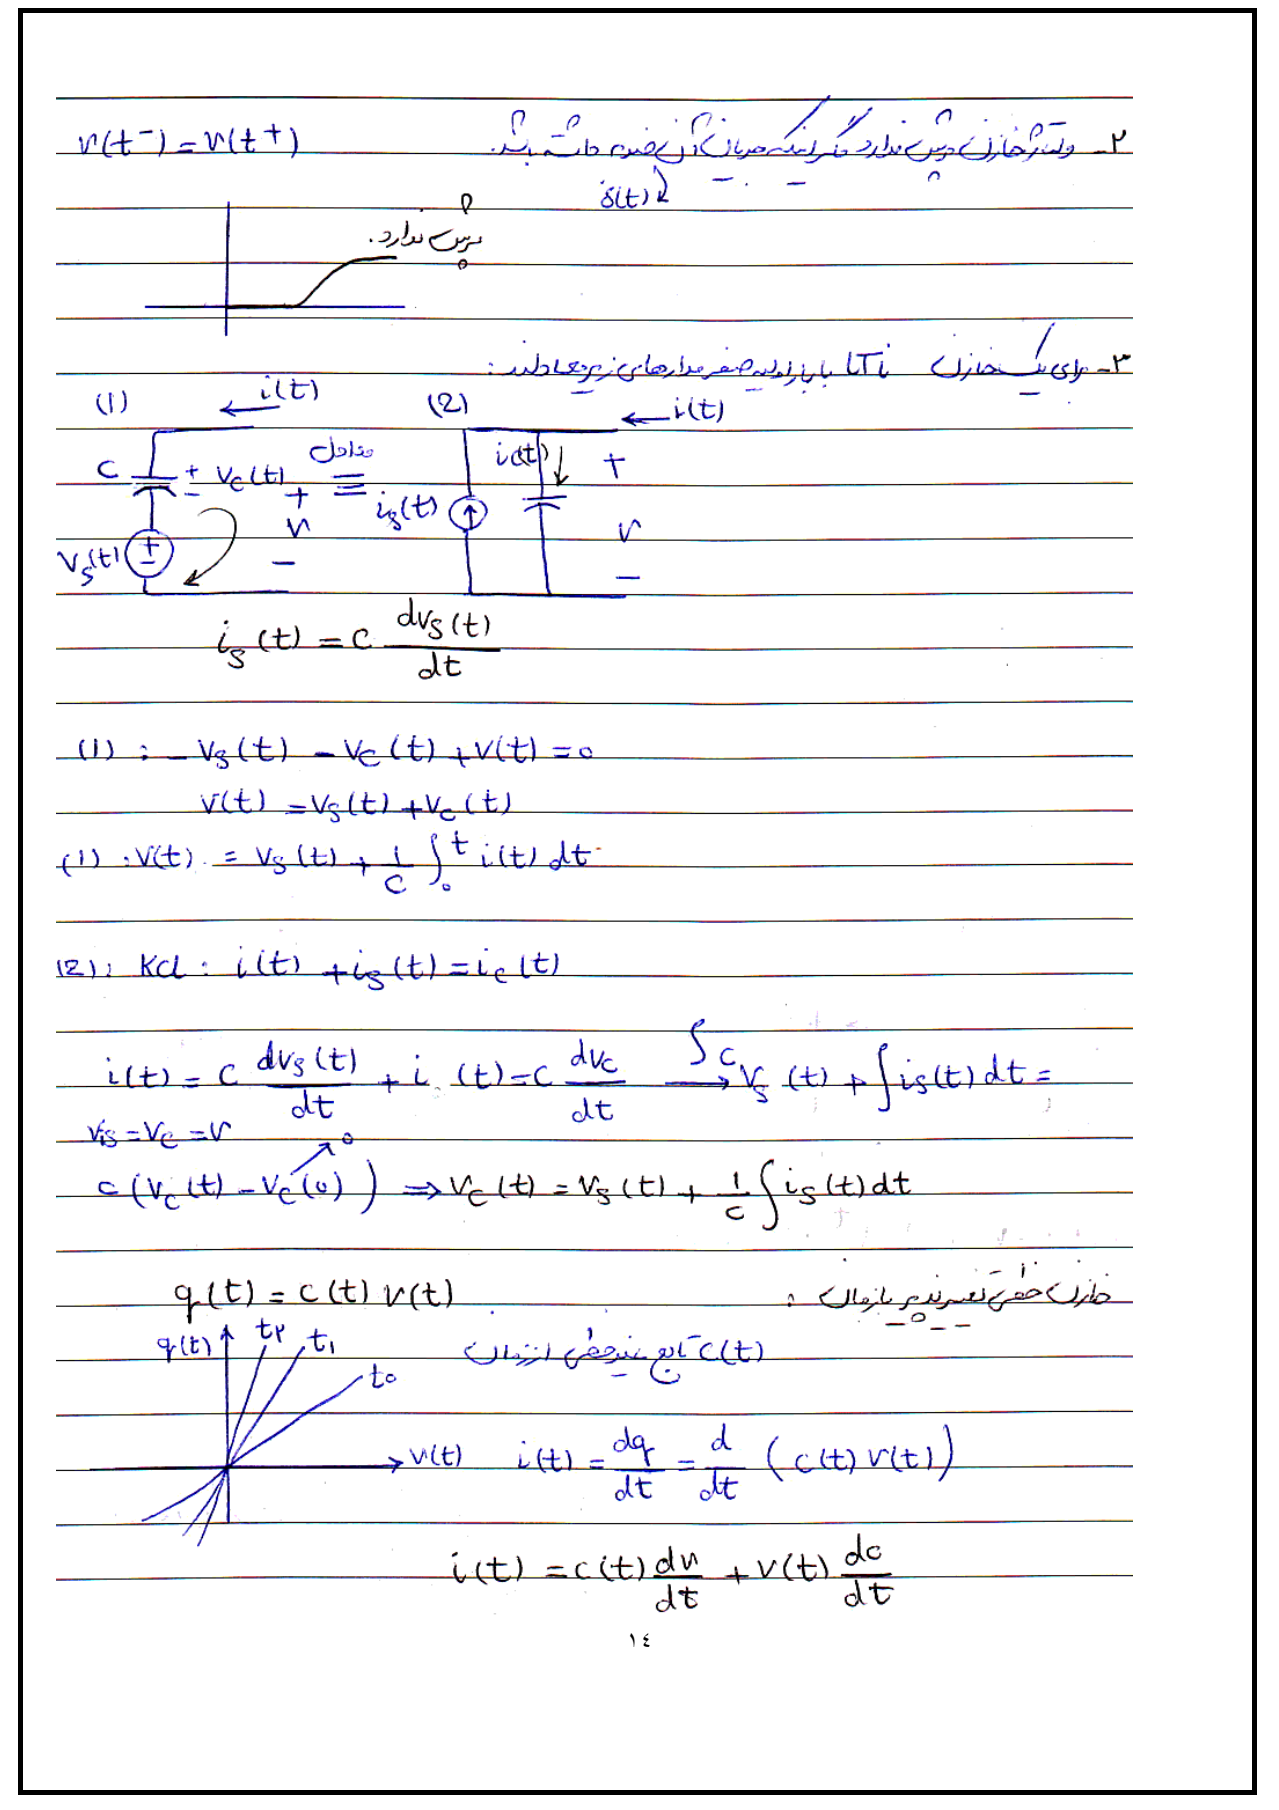 ۲- ولتاژ خازن پرش ندارد مگر اینکه جریان آن ضربه داشته باشد. v(t⁻) = v(t⁺)
δ(t)
پرش ندارد.
۳- برای یک خازن LTi با بار اولیه صفر مدارهای زیر معادلند:
(1) i(t) (2) i(t)
C + − Vc(t) معادل ≡ i(t) +
+ v − is(t) v −
Vs(t) + −
is(t) = C dvs(t)/dt
(1) : − Vs(t) − Vc(t) + V(t) = 0
V(t) = Vs(t) + Vc(t)
(1) : V(t) = Vs(t) + 1/C ∫₀ᵗ i(t) dt
(2) : Kcl : i(t) + is(t) = ic(t)
i(t) = C dvs(t)/dt + i (t) = C dvc/dt ∫→ C Vs(t) + ∫ is(t) dt =
Vis = Vc = V
C (Vc(t) − Vc(0)) ↗ 0 ⇒ Vc(t) = Vs(t) + 1/C ∫ is(t) dt
خازن خطی تغییرپذیر با زمان :
q(t) = C(t) V(t)
q(t) t۲ t₁ t₀
C(t) تابع غیرخطی از زمان
v(t) i(t) = dq/dt = d/dt (C(t) V(t))
i(t) = C(t) dv/dt + V(t) dc/dt
١٤